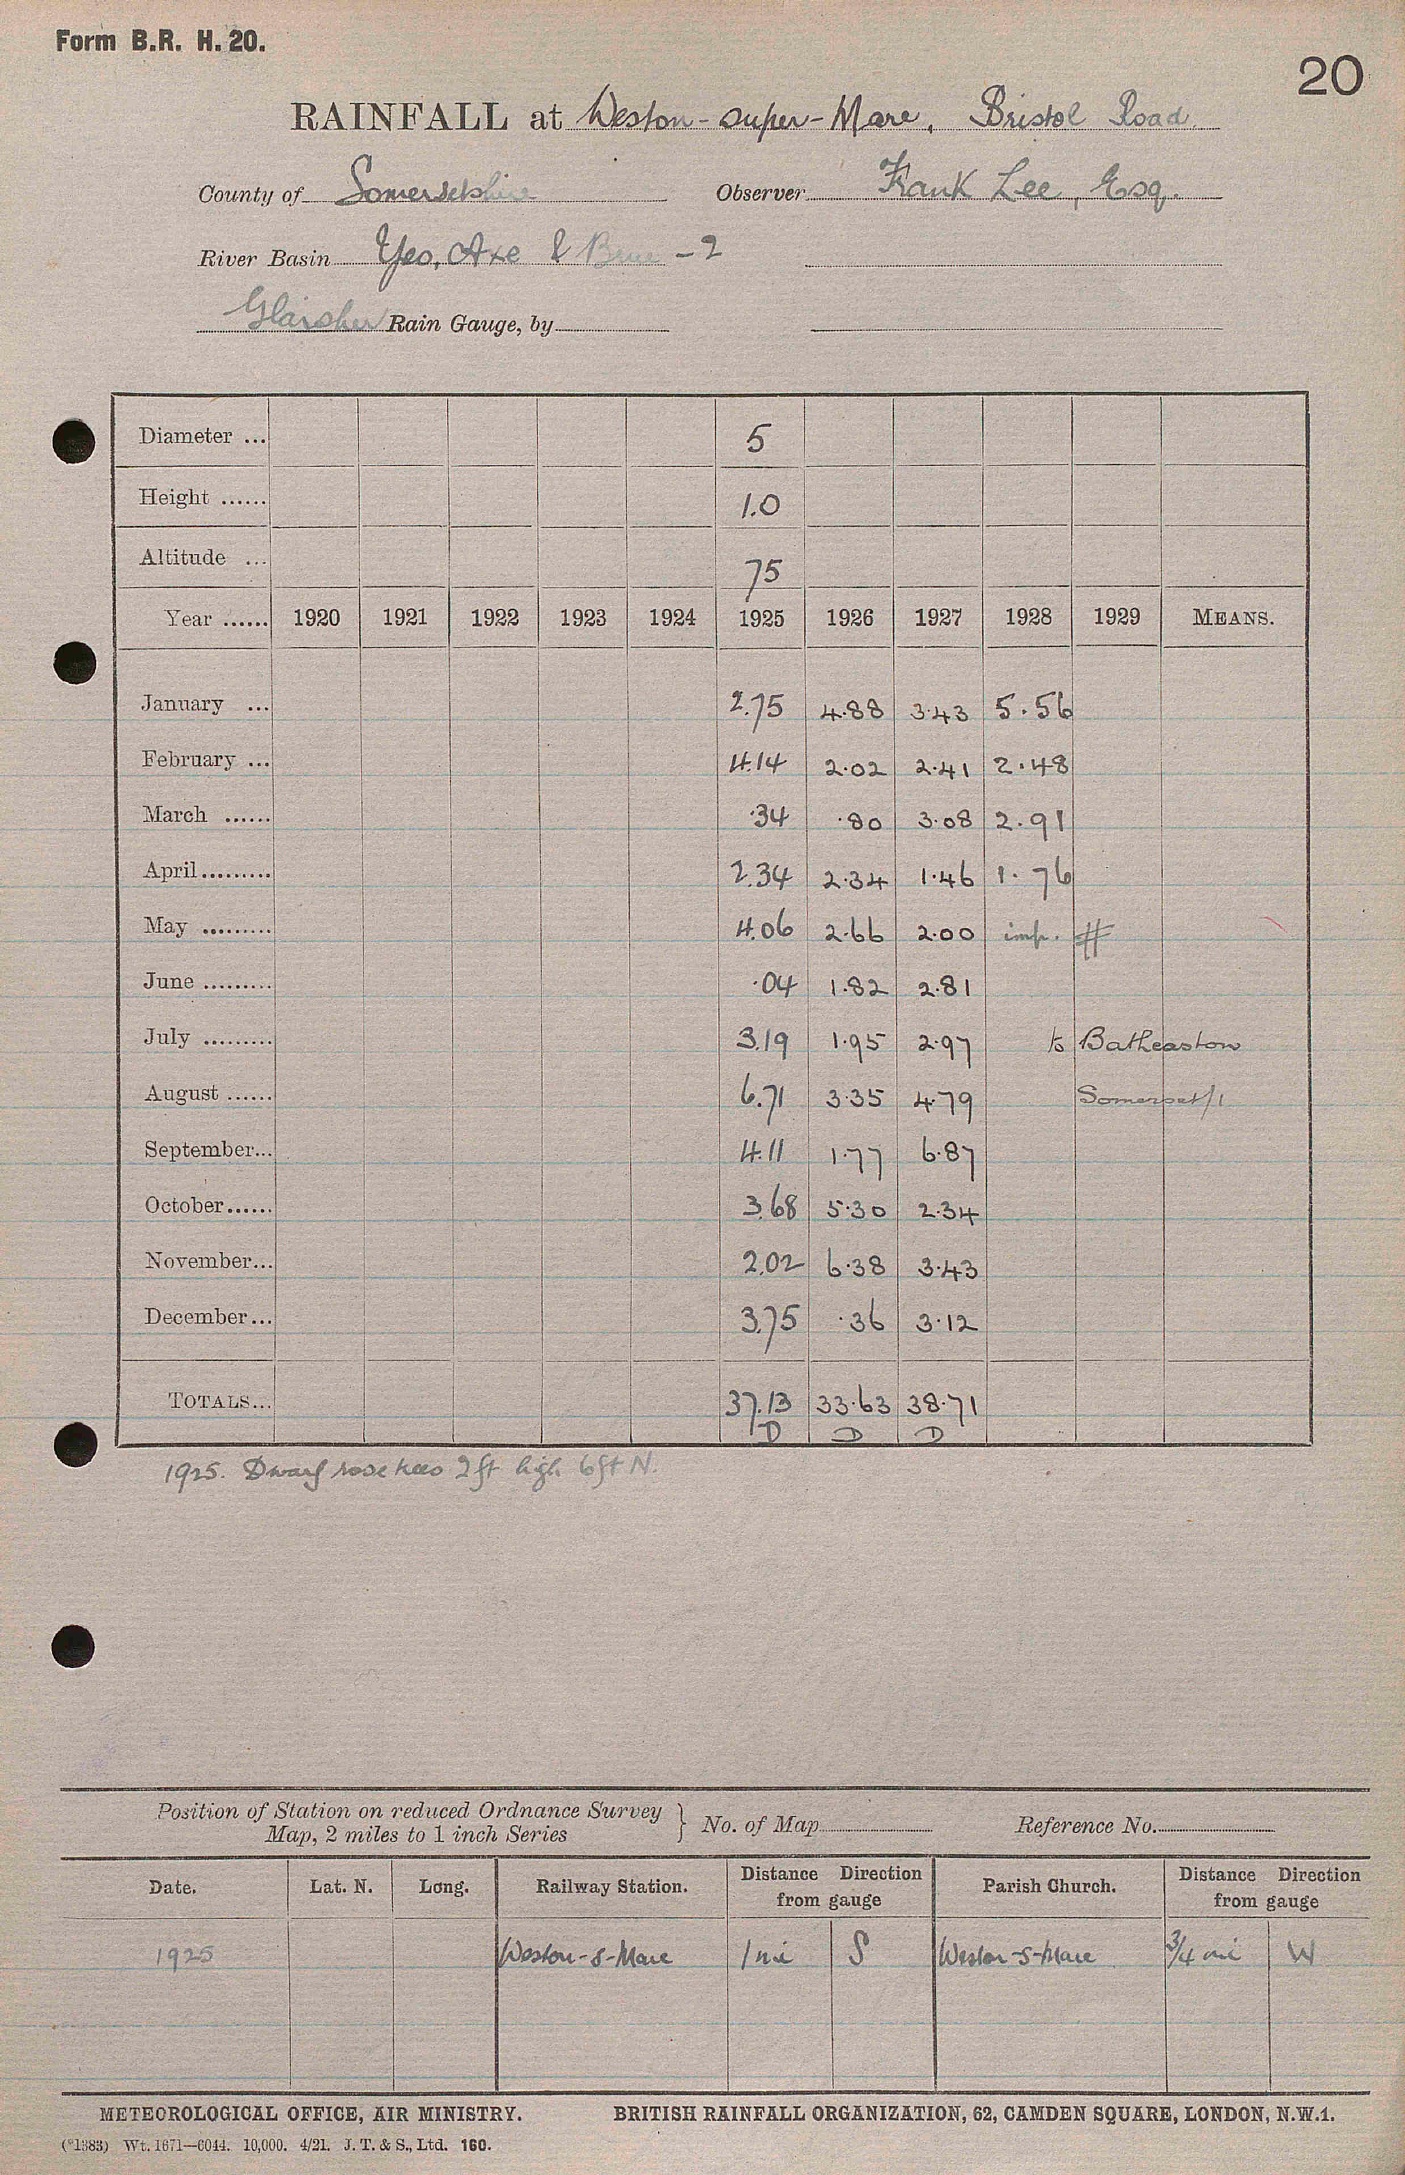 Form B.R. H. 20.
20
RAINFALL at Weston-super-Mare, Bristol Road.
County of Somersetshire Observer Frank Lee, Esq.
River Basin Yeo, Axe & Brue - 2
Glaisher Rain Gauge, by
Diameter ... 5
Height ...... 1.0
Altitude ... 75
Year ...... 1920 1921 1922 1923 1924 1925 1926 1927 1928 1929 MEANS.
January ... 2.75 4.88 3.43 5.56
February ... 4.14 2.02 2.41 2.48
March ...... .34 .80 3.08 2.91
April......... 2.34 2.34 1.46 1.76
May ......... 4.06 2.66 2.00 imp. #
June ......... .04 1.82 2.81
July ......... 3.19 1.95 2.97 to Batheaston
August ...... 6.71 3.35 4.79 Somerset/1
September... 4.11 1.77 6.87
October...... 3.68 5.30 2.34
November... 2.02 6.38 3.43
December... 3.75 .36 3.12
TOTALS... 37.13 33.63 38.71
D D D
1925. Dwarf rose trees 2ft high 6ft N.
Position of Station on reduced Ordnance Survey
Map, 2 miles to 1 inch Series } No. of Map Reference No.
Date. Lat. N. Long. Railway Station. Distance Direction from gauge Parish Church. Distance Direction from gauge
1925 Weston-S-Mare 1 mi S Weston-S-Mare 3/4 mi W
METEOROLOGICAL OFFICE, AIR MINISTRY. BRITISH RAINFALL ORGANIZATION, 62, CAMDEN SQUARE, LONDON, N.W.1.
(*1383) Wt. 1671—6044. 10,000. 4/21. J. T. & S., Ltd. 160.